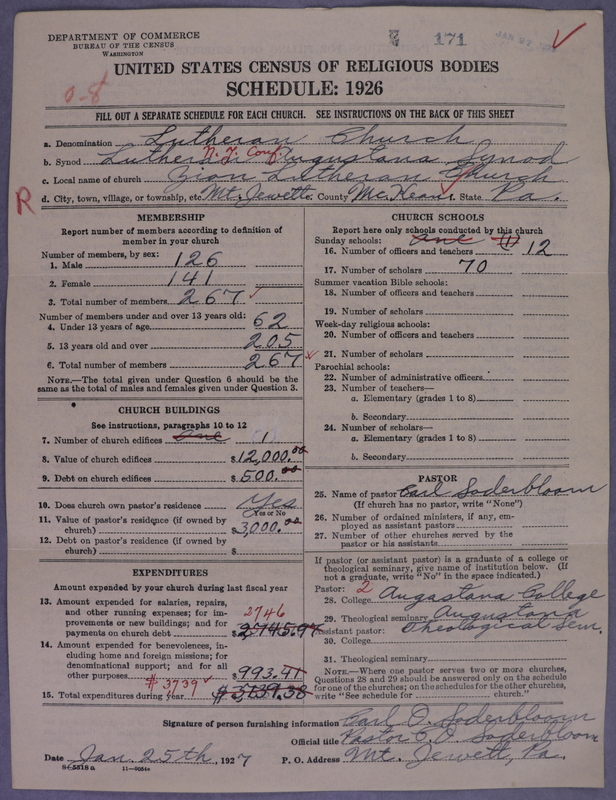 DEPARTMENT OF COMMERCE
BUREAU OF THE CENSUS
WASHINGTON
171
JAN 27
UNITED STATES CENSUS OF RELIGIOUS BODIES
SCHEDULE: 1926
0-8
FILL OUT A SEPARATE SCHEDULE FOR EACH CHURCH. SEE INSTRUCTIONS ON THE BACK OF THIS SHEET
a. Denomination Lutheran Church
N.Y. Conf.
b. Synod Lutheran Augustana Synod
c. Local name of church Zion Lutheran Church
R
d. City, town, village, or township, etc. Mt. Jewett County McKean State Pa.
MEMBERSHIP
Report number of members according to definition of
member in your church
Number of members, by sex:
1. Male 126
2. Female 141
3. Total number of members 267
Number of members under and over 13 years old:
4. Under 13 years of age 62
5. 13 years old and over 205
6. Total number of members 267
NOTE.—The total given under Question 6 should be the
same as the total of males and females given under Question 3.
CHURCH BUILDINGS
See instructions, paragraphs 10 to 12
7. Number of church edifices one 1
8. Value of church edifices $12,000.00
9. Debt on church edifices $500.00
10. Does church own pastor's residence Yes
Yes or No
11. Value of pastor's residence (if owned by
church) $3,000.00
12. Debt on pastor's residence (if owned by
church) $
EXPENDITURES
Amount expended by your church during last fiscal year
13. Amount expended for salaries, repairs,
and other running expenses; for im-
provements or new buildings; and for
2746
payments on church debt $2745.97
14. Amount expended for benevolences, in-
cluding home and foreign missions; for
denominational support; and for all
other purposes $993.41
$3739
15. Total expenditures during year $3739.38
CHURCH SCHOOLS
Report here only schools conducted by this church
Sunday schools: one (1)
16. Number of officers and teachers 12
17. Number of scholars 70
Summer vacation Bible schools:
18. Number of officers and teachers
19. Number of scholars
Week-day religious schools:
20. Number of officers and teachers
21. Number of scholars
Parochial schools:
22. Number of administrative officers
23. Number of teachers—
a. Elementary (grades 1 to 8)
b. Secondary
24. Number of scholars—
a. Elementary (grades 1 to 8)
b. Secondary
PASTOR
25. Name of pastor Carl Soderbloom
(If church has no pastor, write "None")
26. Number of ordained ministers, if any, em-
ployed as assistant pastors
27. Number of other churches served by the
pastor or his assistants
If pastor (or assistant pastor) is a graduate of a college or
theological seminary, give name of institution below. (If
not a graduate, write "No" in the space indicated.)
Pastor: 2
28. College Augustana College
29. Theological seminary Augustana
Assistant pastor: Theological Sem.
30. College
31. Theological seminary
NOTE.—Where one pastor serves two or more churches,
Questions 28 and 29 should be answered only on the schedule
for one of the churches; on the schedules for the other churches,
write "See schedule for church."
Signature of person furnishing information Carl O. Soderbloom
Official title Pastor C. O. Soderbloom
Date Jan. 25th, 1927 P. O. Address Mt. Jewett, Pa.
8-5518 a 11-9054a